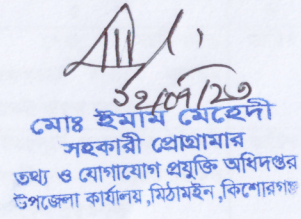 মোঃ ইমাম মেহেদী
সহকারী প্রোগ্রামার
তথ্য ও যোগাযোগ প্রযুক্তি অধিদপ্তর
উপজেলা কার্যালয়, মিঠামইন, কিশোরগঞ্জ